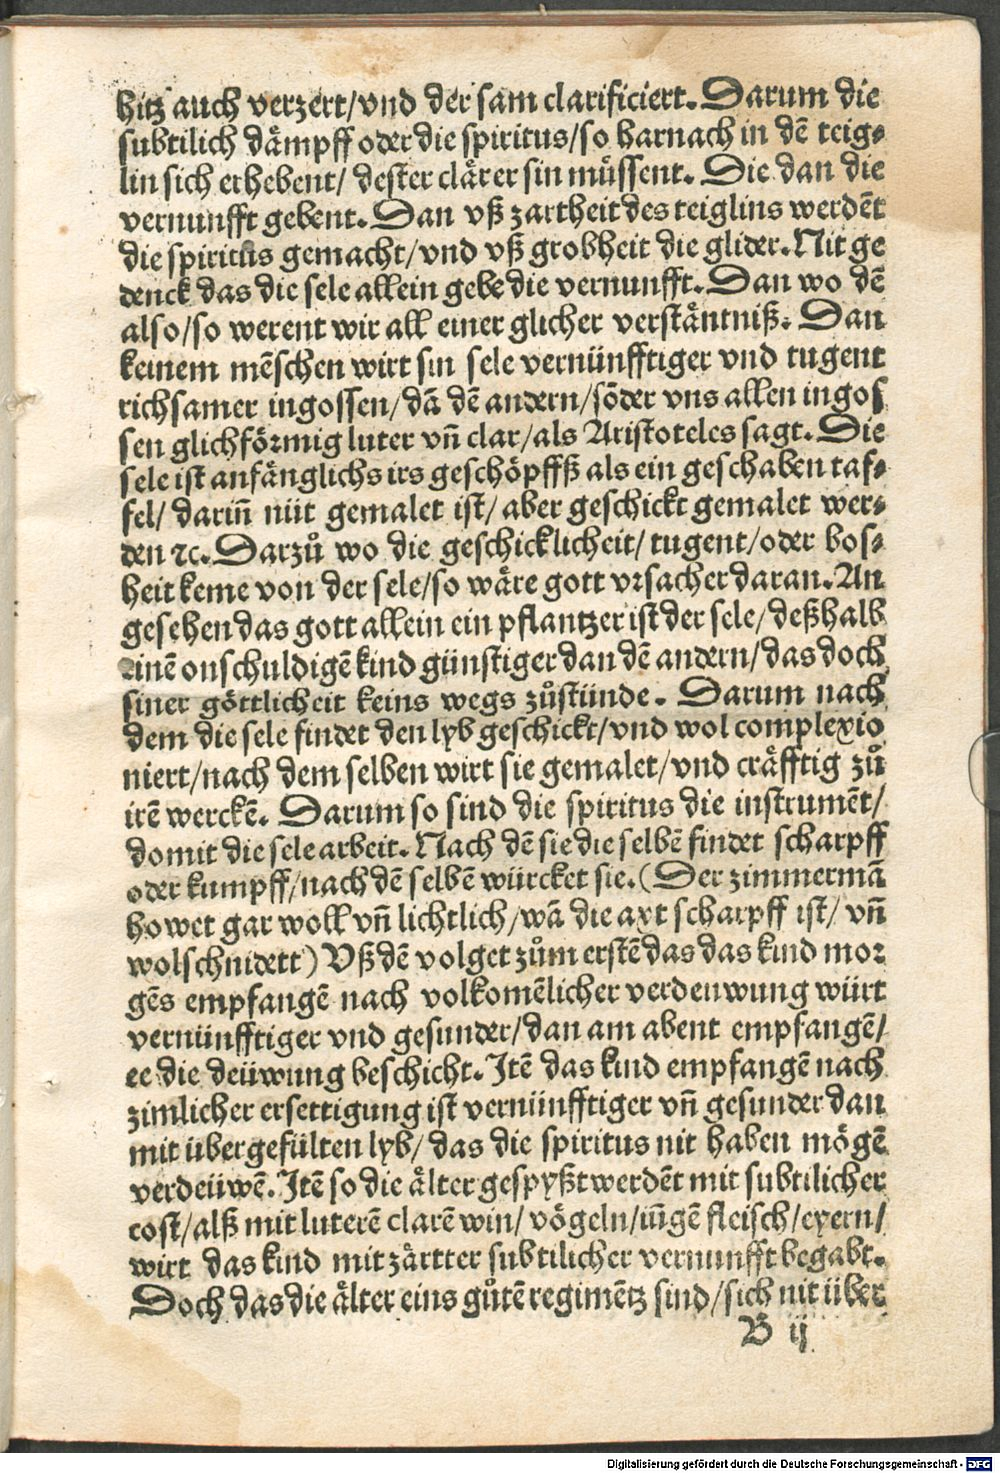 hitz auch verzert/vnd der sam clarificiert. Darum die
subtilich dämpff oder die spiritus/so harnach in dē teig⸗
lin sich erhebent/ dester clärer sin müssent. Die dan die
vernunfft gebent. Dan vß zartheit des teiglins werdēt
die spiritus gemacht/vnd vß grobheit die glider. Nit ge
denck das die sele allein gebe die vernunfft. Dan wo dē
also/so werent wir all einer glicher verstäntniß. Dan
keinem mēschen wirt sin sele vernünfftiger vnd tugent
richsamer ingossen/dā dē andern/sōder vns allen ingos
sen glichförmig luter vn̄ clar/als Aristoteles sagt. Die
sele ist anfänglichs irs geschöpffß als ein geschaben taf⸗
fel/ dariñ nüt gemalet ist/ aber geschickt gemalet wer⸗
den ꝛc. Darzů wo die geschicklicheit/ tugent/oder bos⸗
heit keme von der sele/so wäre gott vrsacher daran. An
gesehen das gott allein ein pflantzer ist der sele/ deßhalb
einē onschuldigē kind günstiger dan dē andern/das doch
siner göttlicheit keins wegs zůstünde. Darum nach
dem die sele findet den lyb geschickt/vnd wol complexio
niert/nach dem selben wirt sie gemalet/vnd cräfftig zů
irē werckē. Darum so sind die spiritus die instrumēt/
domit die sele arbeit. Nach dē sie die selbē findet scharpff
oder kumpff/nach dē selbē würcket sie. (Der zimmermā
howet gar woll vn̄ lichtlich/wā die axt scharpff ist/ vn̄
wolschnidett) Vß dē volget zům erstē das das kind mor
gēs empfangē nach volkomēlicher verdeuwung würt
vernünfftiger vnd gesunder/dan am abent empfangē/
ee die deüwung beschicht. Itē das kind empfangē nach
zimlicher ersettigung ist vernünfftiger vn̄ gesunder dan
mit übergefülten lyb/ das die spiritus nit haben mögē
verdeüwē. Itē so die älter gespyßt werdēt mit subtilicher
cost/alß mit luterē clarē win/ vögeln/iūgē fleisch/eyern/
wirt das kind mit zärtter subtilicher vernunfft begabt.
Doch das die älter eins gůtē regimētz sind/sich nit über
B ij
Digitalisierung gefördert durch die Deutsche Forschungsgemeinschaft - DFG